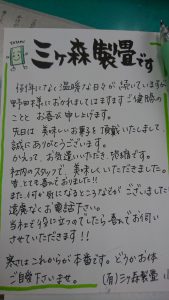 TATAMI
三ヶ森製畳です
例年になく温暖な日々が続いていますが
野田様におかれましてはますますご健勝の
こととお喜び申し上げます。
先日は美味しいお菓子を頂戴いたしまして、
誠にありがとうございます。
かえって、お気遣いいただき、恐縮です。
社内のスタッフで、美味しくいただきました。
皆、とても喜んでおりました!!
また、何か気になるところなどがございましたら
遠慮なくお電話下さい。
当社でお役に立つのでしたら喜んでお伺い
させていただきます!!
寒さはこれからが本番です。どうかお体
ご自愛下さいませ。
(有)三ヶ森製畳